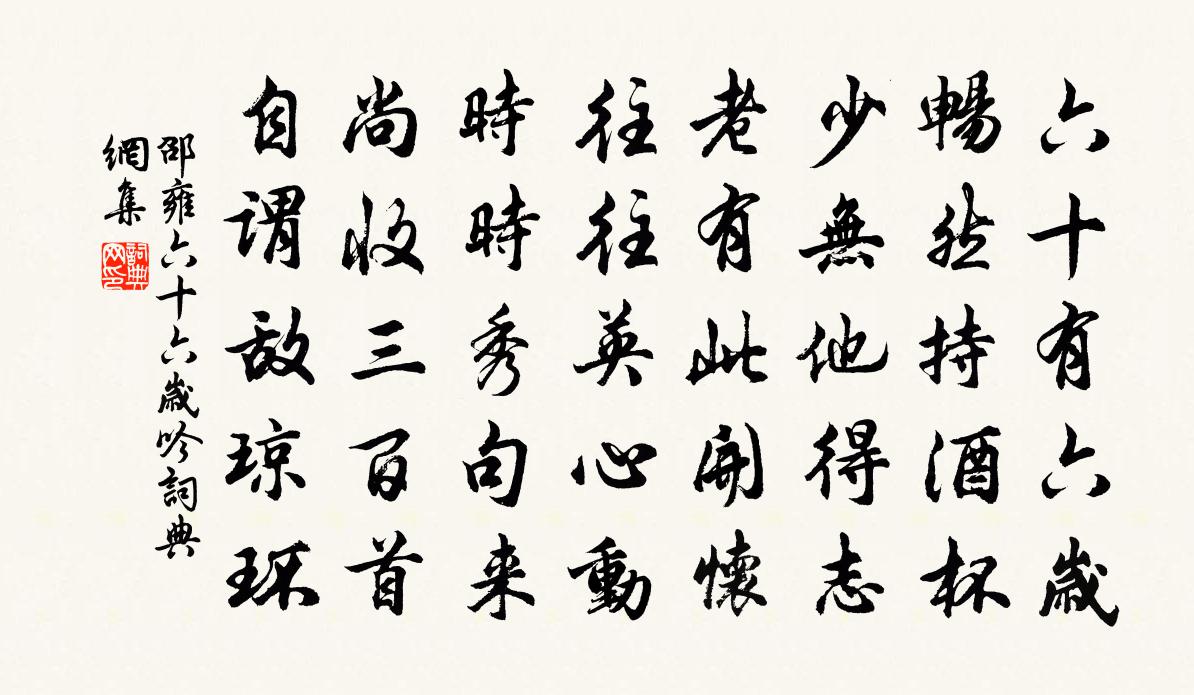 六十有六歲
暢然持酒杯
少無他得志
老有此開懷
往往英心動
時時秀句來
尚收三百首
自謂敵瓊瑰
邵雍六十六歲吟詞典
網集
詞典
网印